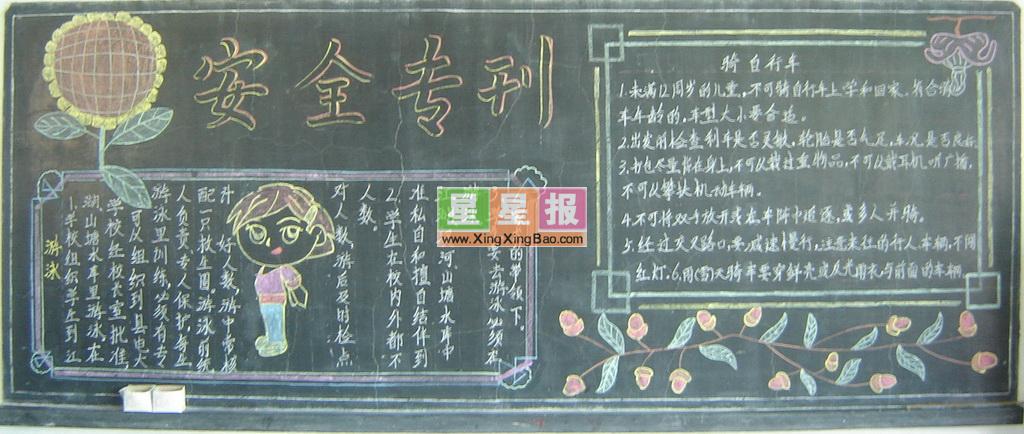 安全专刊
游泳
1.学校组织学生到江
湖山塘水库里游泳,在
学校经校长室批准,
可以组织到县电大
游泳里训练,必须有专
人负责,专人保护,每组
配一只救生圈。游泳前统
计好人数,游中常核
对人数,游后及时检点
人数。
2.学生在校内外都不
准私自和擅自结伴到
河山塘水库中
去游泳必须在
的带领下。
骑自行车
1.未满12周岁的儿童,不可骑自行车上学和回家。符合
车年龄的,车型大小要合适。
2.出发前检查刹车是否灵敏,轮胎是否气足,车况是否良好
3.书包尽量背在身上,不可以载过重物品,不可以戴耳机听广播,
不可以攀扶机动车辆。
4.不可将双手放开或在车阵中追逐,或多人并骑。
5.经过交叉路口,要减速慢行,注意来往的行人、车辆,不闯
红灯。6.雨(雪)天骑车要穿鲜亮或反光雨衣,与前面的车辆
星星报
www.XingXingBao.com